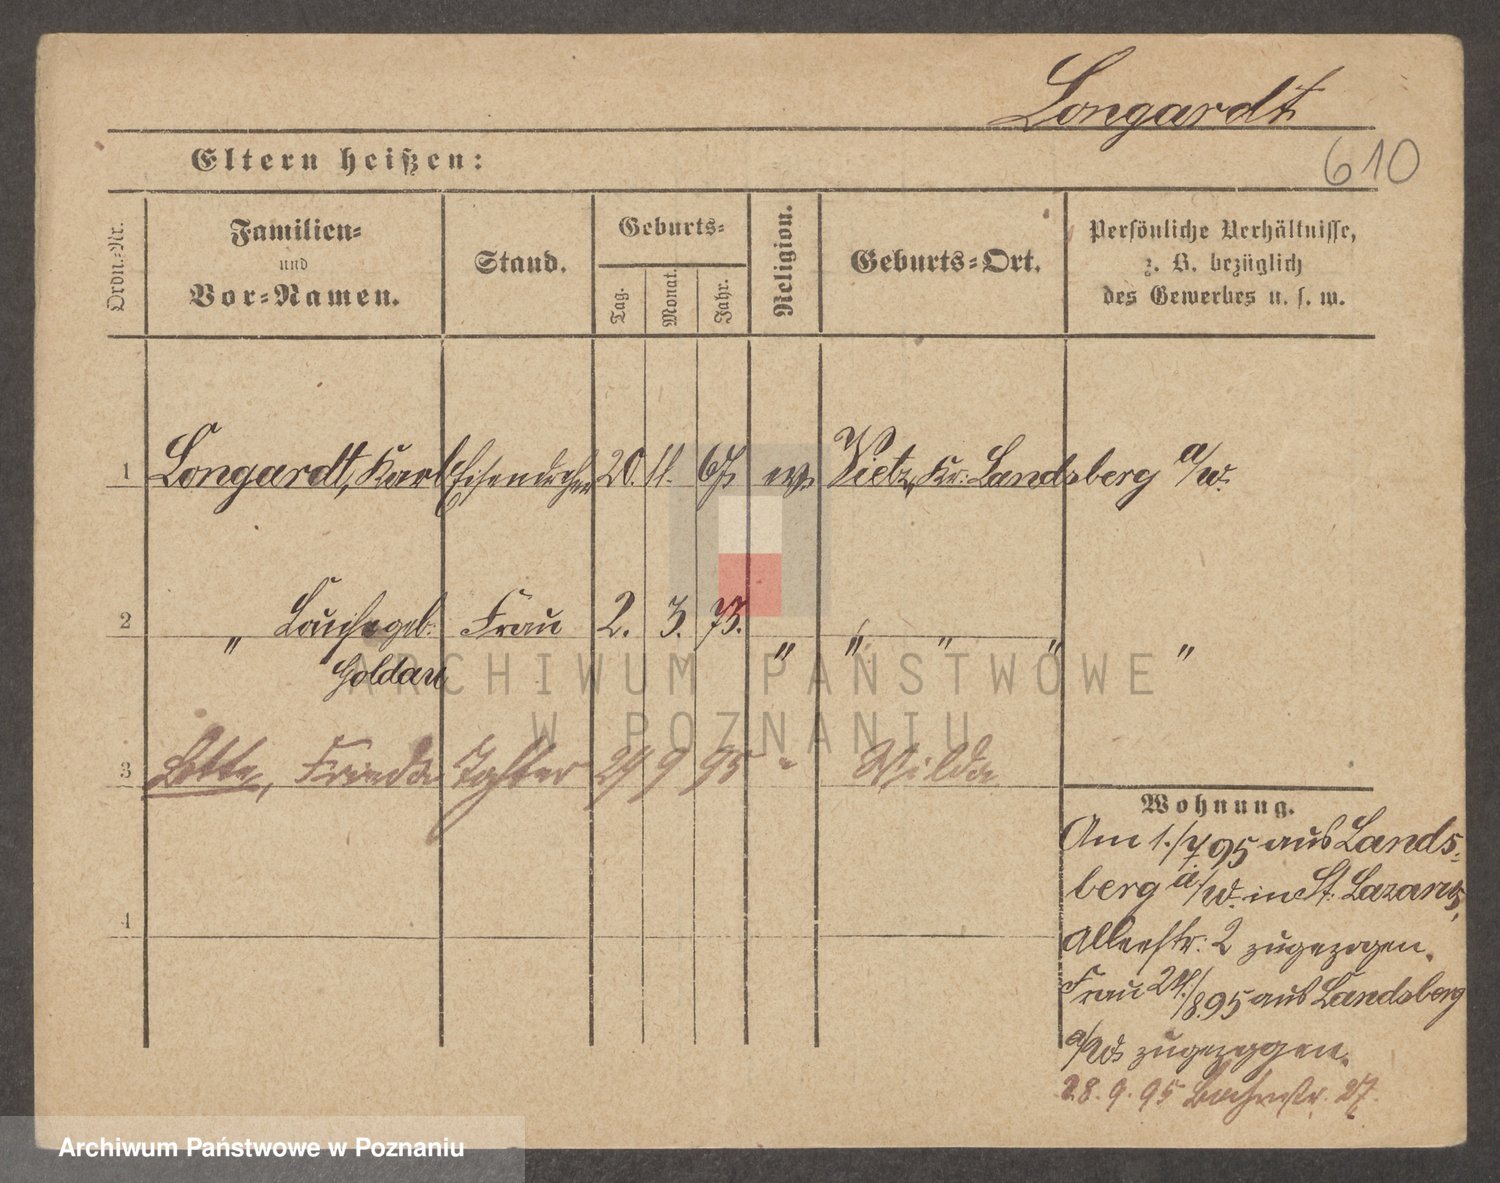 Longardt
610
Eltern heißen:
Ordn.-Nr.
Familien-
und
Vor-Namen.
Stand.
Geburts-
Tag.
Monat.
Jahr.
Religion.
Geburts-Ort.
Persönliche Verhältnisse,
z. B. bezüglich
des Gewerbes u. s. w.
1 Longardt, Karl Eisendreher 20. 11. 67 ev. Vietz, Kr. Landsberg a/W.
2 " Louise geb. Frau 2. 3. 73. " " " " "
Goldau
3 Lotte, Frieda Tochter 29 9 95 " Wilda
4
Wohnung.
Am 1./7 95 aus Lands-
berg a/W. in St. Lazarus,
Alleestr. 2 zugezogen.
Frau 24./8.95 aus Landsberg
a/W. zugezogen.
28.9.95 Bachstr. 27.
ARCHIWUM PAŃSTWOWE
W POZNANIU
Archiwum Państwowe w Poznaniu